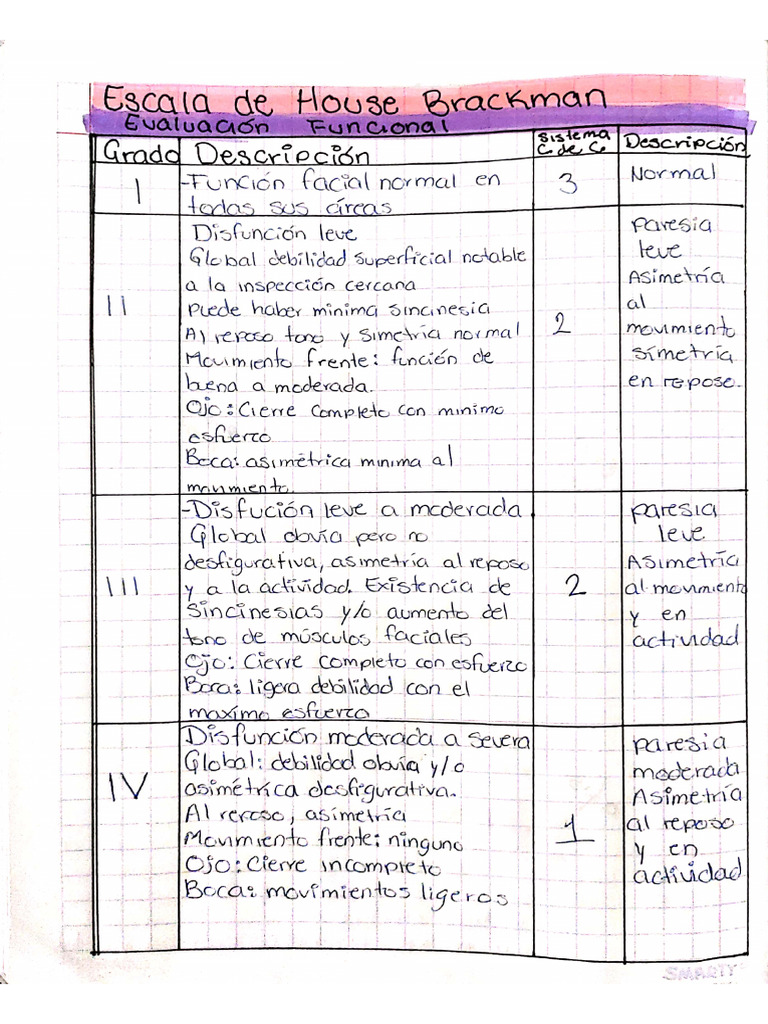 Escala de House Brackman
Evaluación Funcional
Grado Descripción Sistema C de C Descripción
I -Función facial normal en 3 Normal
todas sus áreas
Disfunción leve paresia
Global debilidad superficial notable leve
a la inspección cercana Asimetría
II puede haber minima sincinesia al
Al reposo tono y simetría normal 2 movimiento
Movimiento frente: función de simetría
buena a moderada. en reposo.
Ojo: Cierre completo con minimo
esfuerzo
Boca: asimétrica minima al
movimiento.
-Disfución leve a moderada paresia
Global obvia pero no leve
desfigurativa, asimetría al reposo Asimetría
III y a la actividad. Existencia de 2 al movimiento
sincinesias y/o aumento del y en
tono de músculos faciales actividad
Ojo: Cierre completo con esfuerzo
Boca: ligera debilidad con el
maximo esfuerzo
Disfunción moderada a severa paresia
Global: debilidad obvia y/o moderada
IV asimétrica desfigurativa. Asimetría
Al reposo, asimetría 1 al reposo
Movimiento frente: ninguno y en
Ojo: Cierre incompleto actividad
Boca: movimientos ligeros
SMARTY